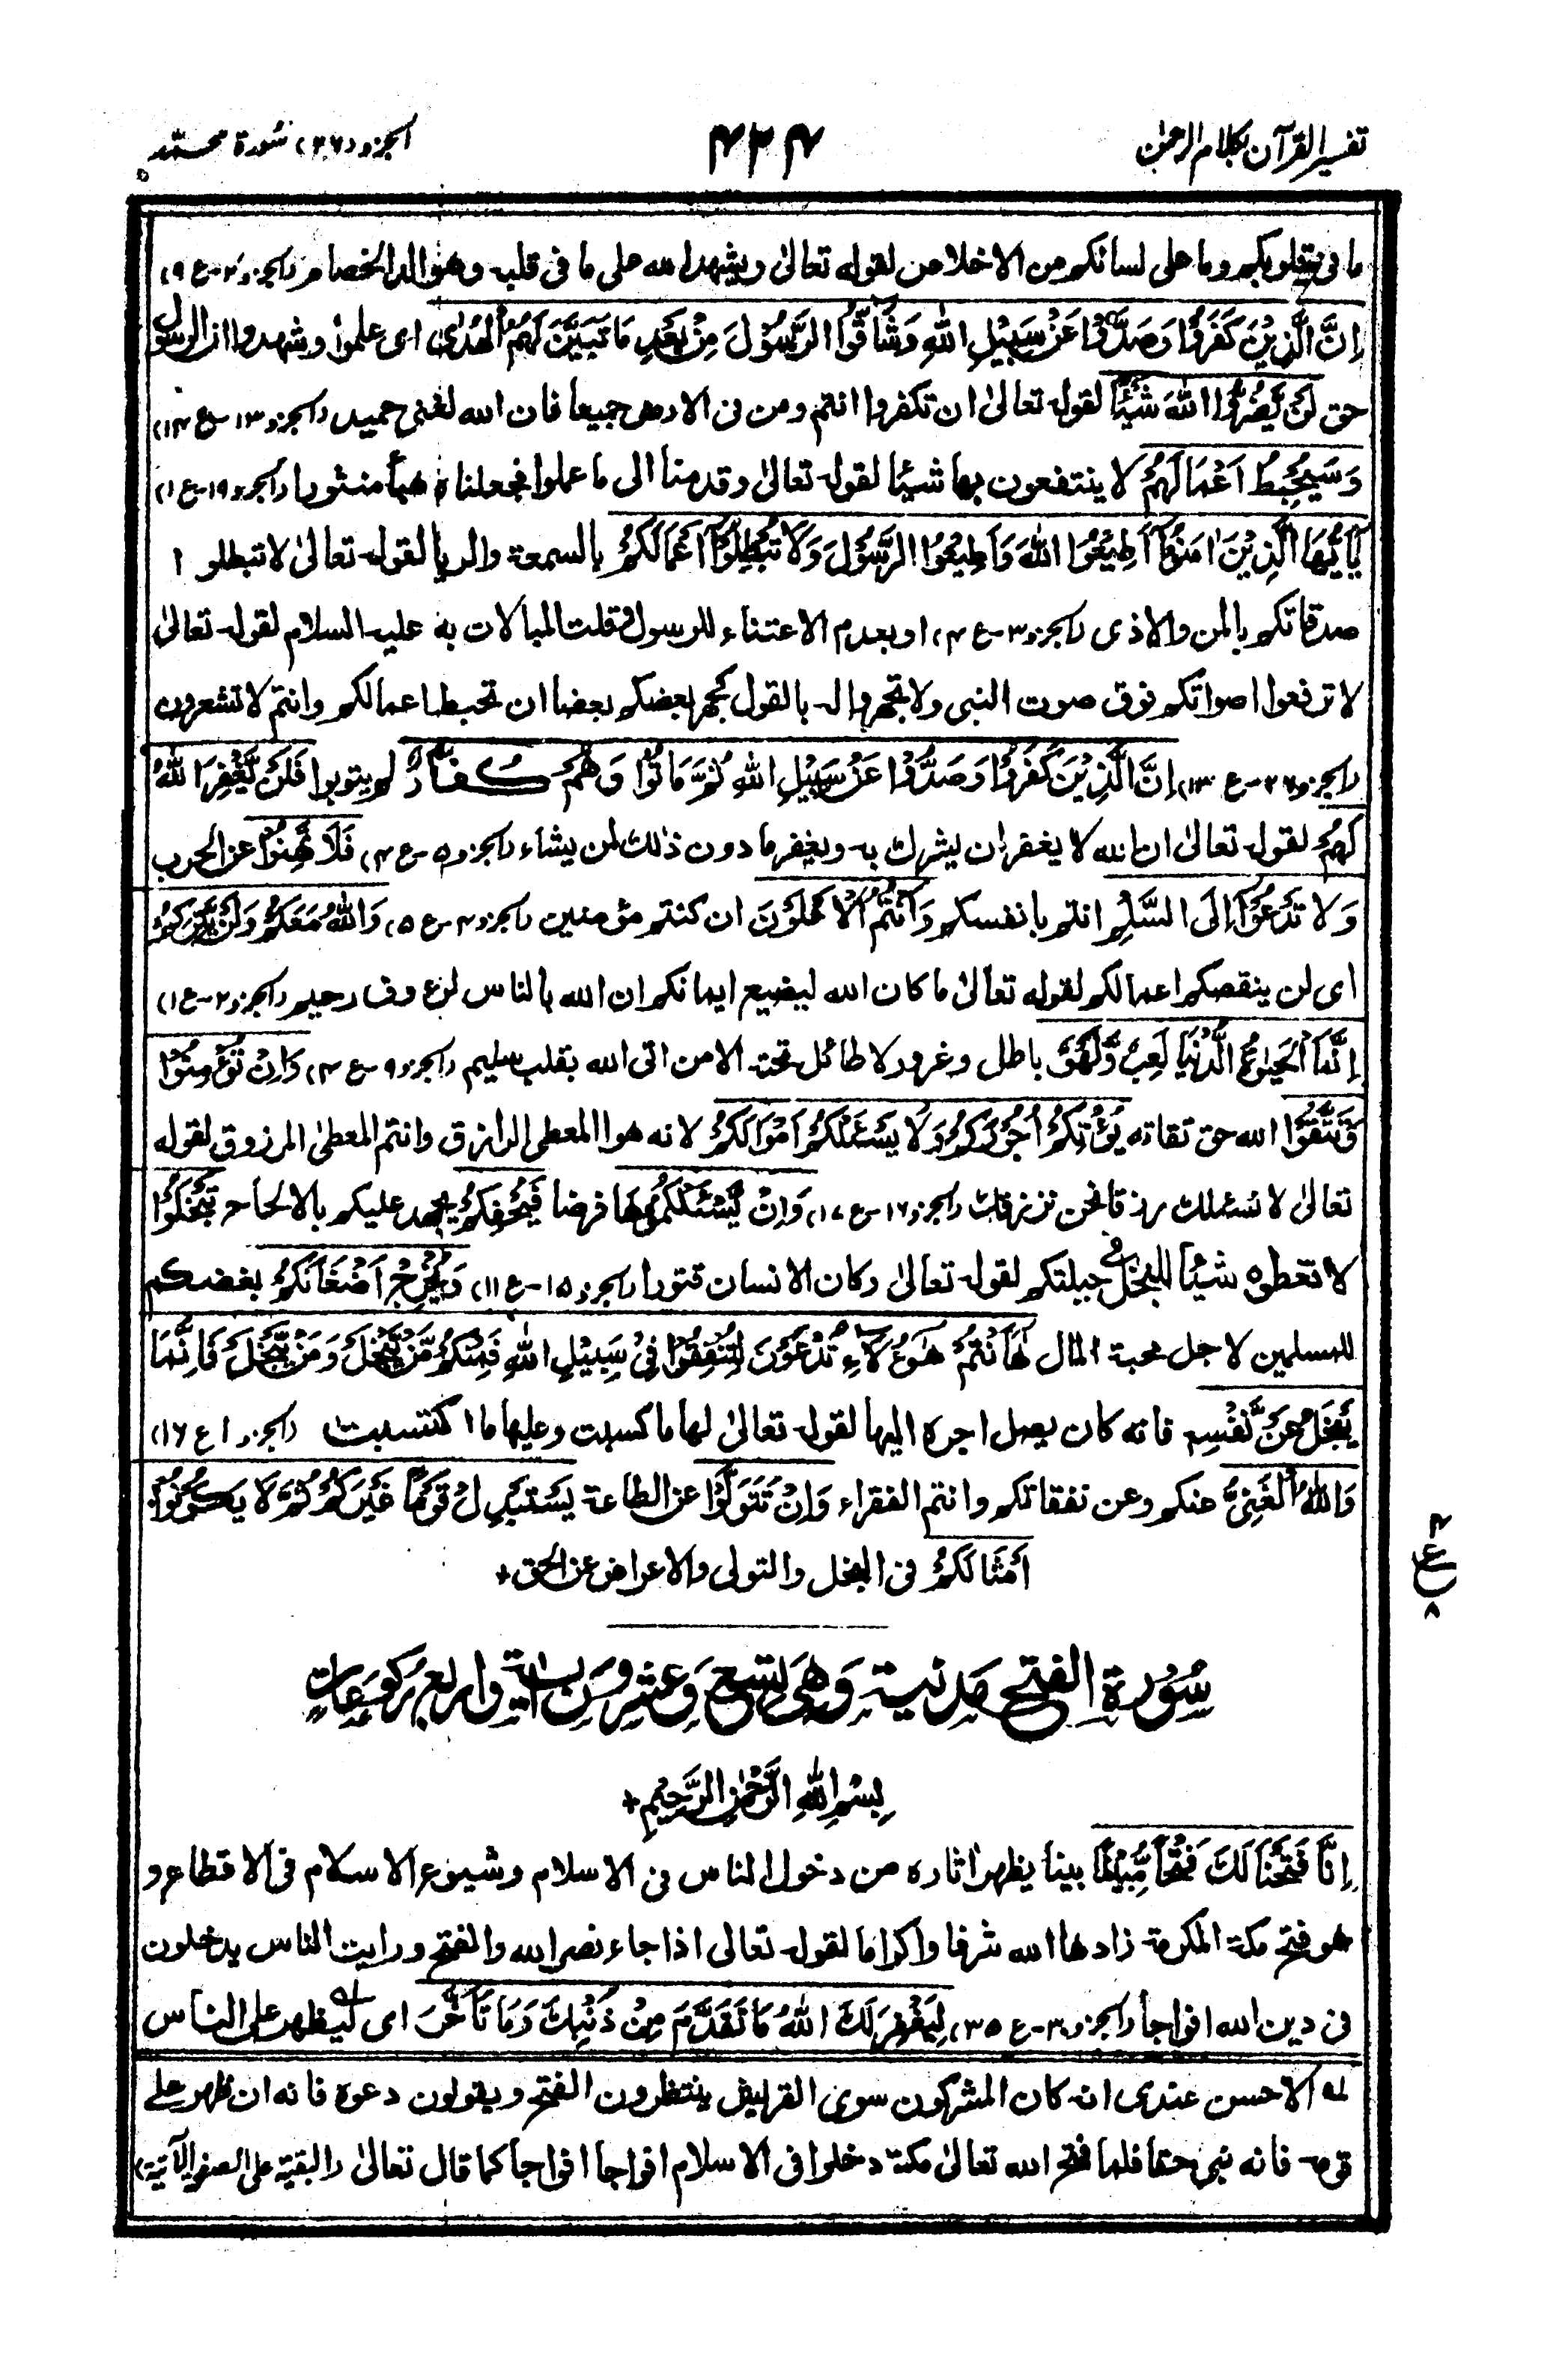 تفسير القرآن بكلام الرحمٰن
۴۲۴
الجزء (۲۶) سُورة محمّد
ما فى قلوبكم وما على لسانكم من الاخلاص لقوله تعالىٰ ويشهد الله على ما فى قلبه وهو الد الخصام (الجزو ۲-ع ۹)
اِنَّ الَّذِيْنَ كَفَرُوْا وَصَدُّوْا عَنْ سَبِيْلِ اللّٰهِ وَشَآقُّوا الرَّسُوْلَ مِنْۢ بَعْدِ مَا تَبَيَّنَ لَهُمُ الْهُدٰى اى علموا وشهدوا ان الرسول
حق لَنْ يَّضُرُّوا اللّٰهَ شَيْئًا لقوله تعالىٰ ان تكفروا انتم ومن فى الارض جميعا فان الله لغنى حميد (الجزو ۱۳-ع ۱۴)
وَسَيُحْبِطُ اَعْمَالَهُمْ لا ينتفعون بها شيئا لقوله تعالىٰ وقدمنا الى ما عملوا فجعلناه هبأ منثورا (الجزو ۱۹-ع ۱)
يٰٓاَيُّهَا الَّذِيْنَ اٰمَنُوْٓا اَطِيْعُوا اللّٰهَ وَاَطِيْعُوا الرَّسُوْلَ وَلَا تُبْطِلُوْٓا اَعْمَالَكُمْ بالسمعة والريا لقوله تعالىٰ لا تبطلوا
صدقاتكم بالمن والاذى (الجزو ۳-ع ۴) او بعدم الاعتناء للرسول وقلت المبالات به عليه السلام لقوله تعالىٰ
لا ترفعوا اصواتكم فوق صوت النبى ولا تجهروا له بالقول كجهر بعضكم بعضا ان تحبط اعمالكم وانتم لا تشعرون
(الجزو ۲۶-ع ۱۳) اِنَّ الَّذِيْنَ كَفَرُوْا وَصَدُّوْا عَنْ سَبِيْلِ اللّٰهِ ثُمَّ مَاتُوْا وَهُمْ كُفَّارٌ لم يتوبوا فَلَنْ يَّغْفِرَ اللّٰهُ
لَهُمْ لقوله تعالىٰ ان الله لا يغفر ان يشرك به ويغفر ما دون ذلك لمن يشاء (الجزو ۵-ع ۴) فَلَا تَهِنُوْا عن الحرب
وَلَا تَدْعُوْٓا اِلَى السَّلْمِ انتم بانفسكم وَاَنْتُمُ الْاَعْلَوْنَ ان كنتم مؤمنين (الجزو ۴-ع ۵) وَاللّٰهُ مَعَكُمْ وَلَنْ يَّتِرَكُمْ
اى لن ينقصكم اعمالكم لقوله تعالىٰ ما كان الله ليضيع ايمانكم ان الله بالناس لرءوف رحيم (الجزو ۲-ع ۱)
اِنَّمَا الْحَيٰوةُ الدُّنْيَا لَعِبٌ وَّلَهْوٌ باطل وغرور لا طائل تحته الا من اتى الله بقلب سليم (الجزو ۹-ع ۴) وَاِنْ تُؤْمِنُوْا
وَتَتَّقُوْا الله حق تقاته يُؤْتِكُمْ اُجُوْرَكُمْ وَلَا يَسْـَٔلْكُمْ اَمْوَالَكُمْ لانه هو المعطى الرازق وانتم المعطىٰ المرزوق لقوله
تعالىٰ لا نسئلك رزقا نحن نرزقك (الجزو ۱۶-ع ۱۷) وَاِنْ يَّسْـَٔلْكُمُوْهَا فرضا فَيُحْفِكُمْ يجهد عليكم بالالحاح تَبْخَلُوْا
لا تعطوه شيئا للبخل فى جبلتكم لقوله تعالىٰ وكان الانسان قتورا (الجزو ۱۵-ع ۱۱) وَيُخْرِجْ اَضْغَانَكُمْ بغضكم
للمسلمين لاجل محبة المال هٰٓاَنْتُمْ هٰٓؤُلَآءِ تُدْعَوْنَ لِتُنْفِقُوْا فِىْ سَبِيْلِ اللّٰهِ فَمِنْكُمْ مَّنْ يَّبْخَلُ وَمَنْ يَّبْخَلْ فَاِنَّمَا
يَبْخَلُ عَنْ نَّفْسِهٖ فانه كان يصل اجره اليها لقوله تعالىٰ لها ما كسبت وعليها ما اكتسبت (الجزو ۱ ع ۱۶)
وَاللّٰهُ الْغَنِىُّ عنكم وعن نفقاتكم وانتم الفقراء وَاِنْ تَتَوَلَّوْا عن الطاعة يَسْتَبْدِلْ قَوْمًا غَيْرَكُمْ ثُمَّ لَا يَكُوْنُوْٓا
اَمْثَالَكُمْ فى البخل والتولى والاعراض عن الحق+
۴
ع
۸
سُوْرَةُ الفتح مدنية وَهِىَ تسع وَعشرون اٰية واربع ركوعات
بِسْمِ اللّٰهِ الرَّحْمٰنِ الرَّحِيْمِ+
اِنَّا فَتَحْنَا لَكَ فَتْحًا مُّبِيْنًا بينا يظهر اثاره من دخول الناس فى الاسلام وشيوع الاسلام فى الاقطاع و
هو فتح مكة المكرمة زادها الله شرفا واكراما لقوله تعالى اذا جاء نصر الله والفتح ورايت الناس يدخلون
فى دين الله افواجا (الجزو ۳۰-ع ۳۵) لِيَغْفِرَ لَكَ اللّٰهُ مَا تَقَدَّمَ مِنْ ذَنْبِكَ وَمَا تَاَخَّرَ اى ليظهر له على الناس
له الاحسن عندى انه كان المشركون سوى القريش ينتظرون الفتح ويقولون دعوه فانه ان ظهر على
قومه فانه نبى حقا فلما فتح الله تعالىٰ مكة دخلوا فى الاسلام افواجا افواجا كما قال تعالىٰ (البقية على الصفحة الآتية)